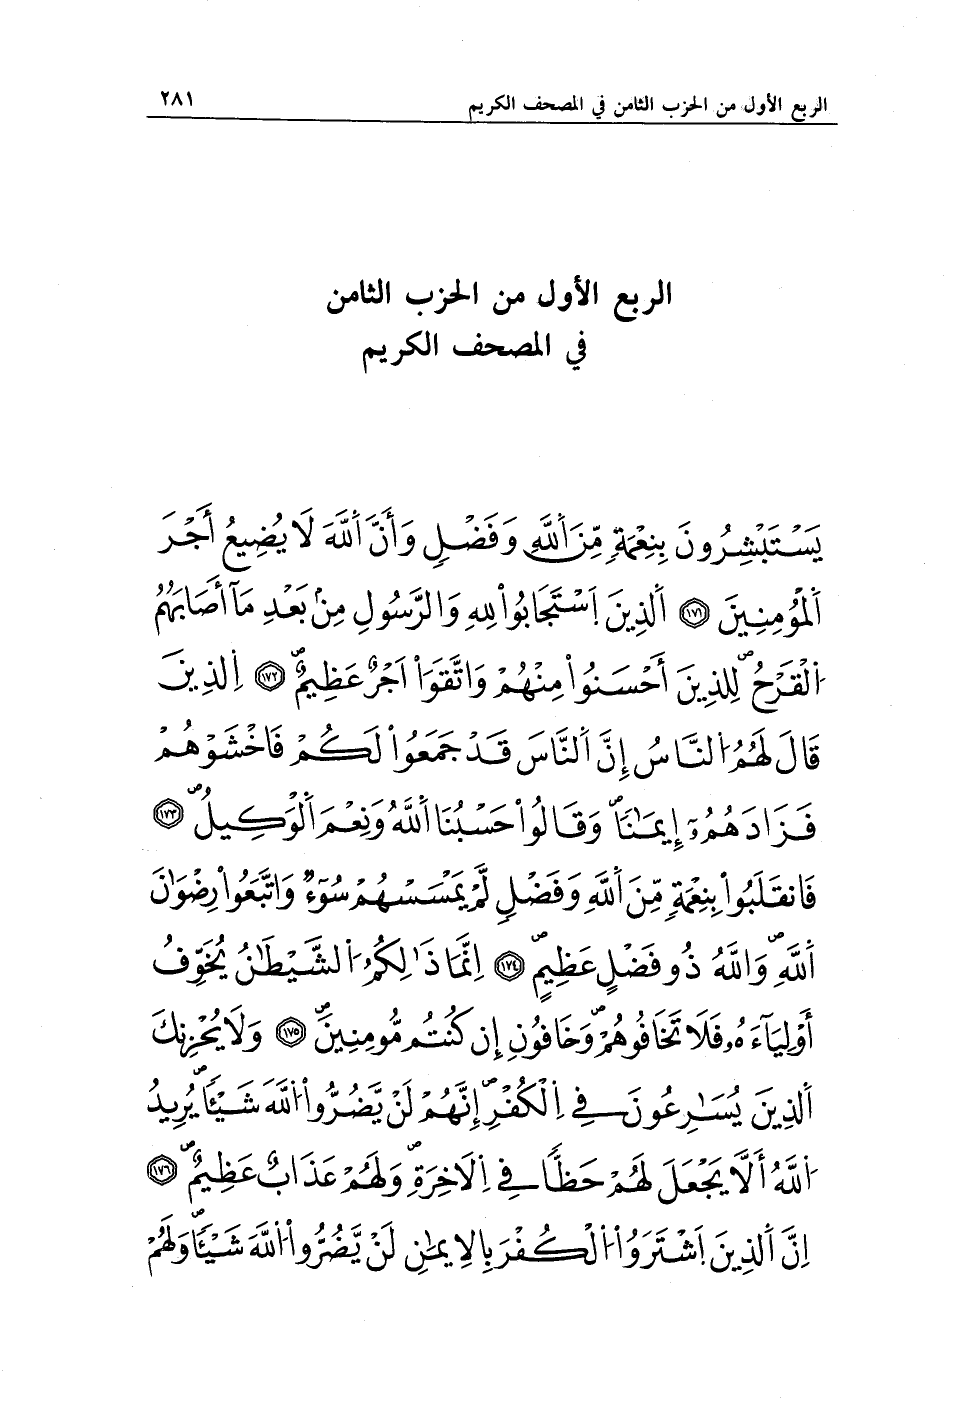 الربع الأول من الحزب الثامن في المصحف الكريم ٢٨١
الربع الأول من الحزب الثامن
في المصحف الكريم
يَسْتَبْشِرُونَ بِنِعْمَةٍ مِّنَ اَ۬للَّهِ وَفَضْلٍ وَأَنَّ اَ۬للَّهَ لَا يُضِيعُ أَجْرَ
اَ۬لْمُومِنِينَ ١٧١ اَ۬لذِينَ اَ۪سْتَجَابُواْ لِلهِ وَالرَّسُولِ مِنۢ بَعْدِ مَآ أَصَابَهُمُ
اُ۬لْقَرْحُۖ لِلذِينَ أَحْسَنُواْ مِنْهُمْ وَاتَّقَوَاْ اَجْرٌ عَظِيمٌۖ ١٧٢ اِ۬لذِينَ
قَالَ لَهُمُ اُ۬لنَّاسُ إِنَّ اَ۬لنَّاسَ قَدْ جَمَعُواْ لَكُمْ فَاخْشَوْهُمْ
فَزَادَهُمُۥٓ إِيمَٰناٗۖ وَقَالُواْ حَسْبُنَا اَ۬للَّهُ وَنِعْمَ اَ۬لْوَكِيلُۖ ١٧٣
فَانقَلَبُواْ بِنِعْمَةٍ مِّنَ اَ۬للَّهِ وَفَضْلٍ لَّمْ يَمْسَسْهُمْ سُوٓءٌ وَاتَّبَعُواْ رِضْوَٰنَ
اَ۬للَّهِۖ وَاللَّهُ ذُو فَضْلٍ عَظِيمٍۖ ١٧٤ اِنَّمَا ذَٰلِكُمُ اُ۬لشَّيْطَٰنُ يُخَوِّفُ
أَوْلِيَآءَهُۥ فَلَا تَخَافُوهُمْۖ وَخَافُونِ إِن كُنتُم مُّومِنِينَۖ ١٧٥ وَلَا يُحْزِنكَ
اَ۬لذِينَ يُسَٰرِعُونَ فِي اِ۬لْكُفْرِۖ إِنَّهُمْ لَنْ يَّضُرُّواْ اُ۬للَّهَ شَيْـٔاٗۖ يُرِيدُ
اُ۬للَّهُ أَلَّا يَجْعَلَ لَهُمْ حَظّاٗ فِي اِ۬لَاخِرَةِۖ وَلَهُمْ عَذَابٌ عَظِيمٌۖ ١٧٦
اِنَّ اَ۬لذِينَ اَ۪شْتَرَوُاْ اُ۬لْكُفْرَ بِالِايمَٰنِ لَنْ يَّضُرُّواْ اُ۬للَّهَ شَيْـٔاٗۖ وَلَهُمْ